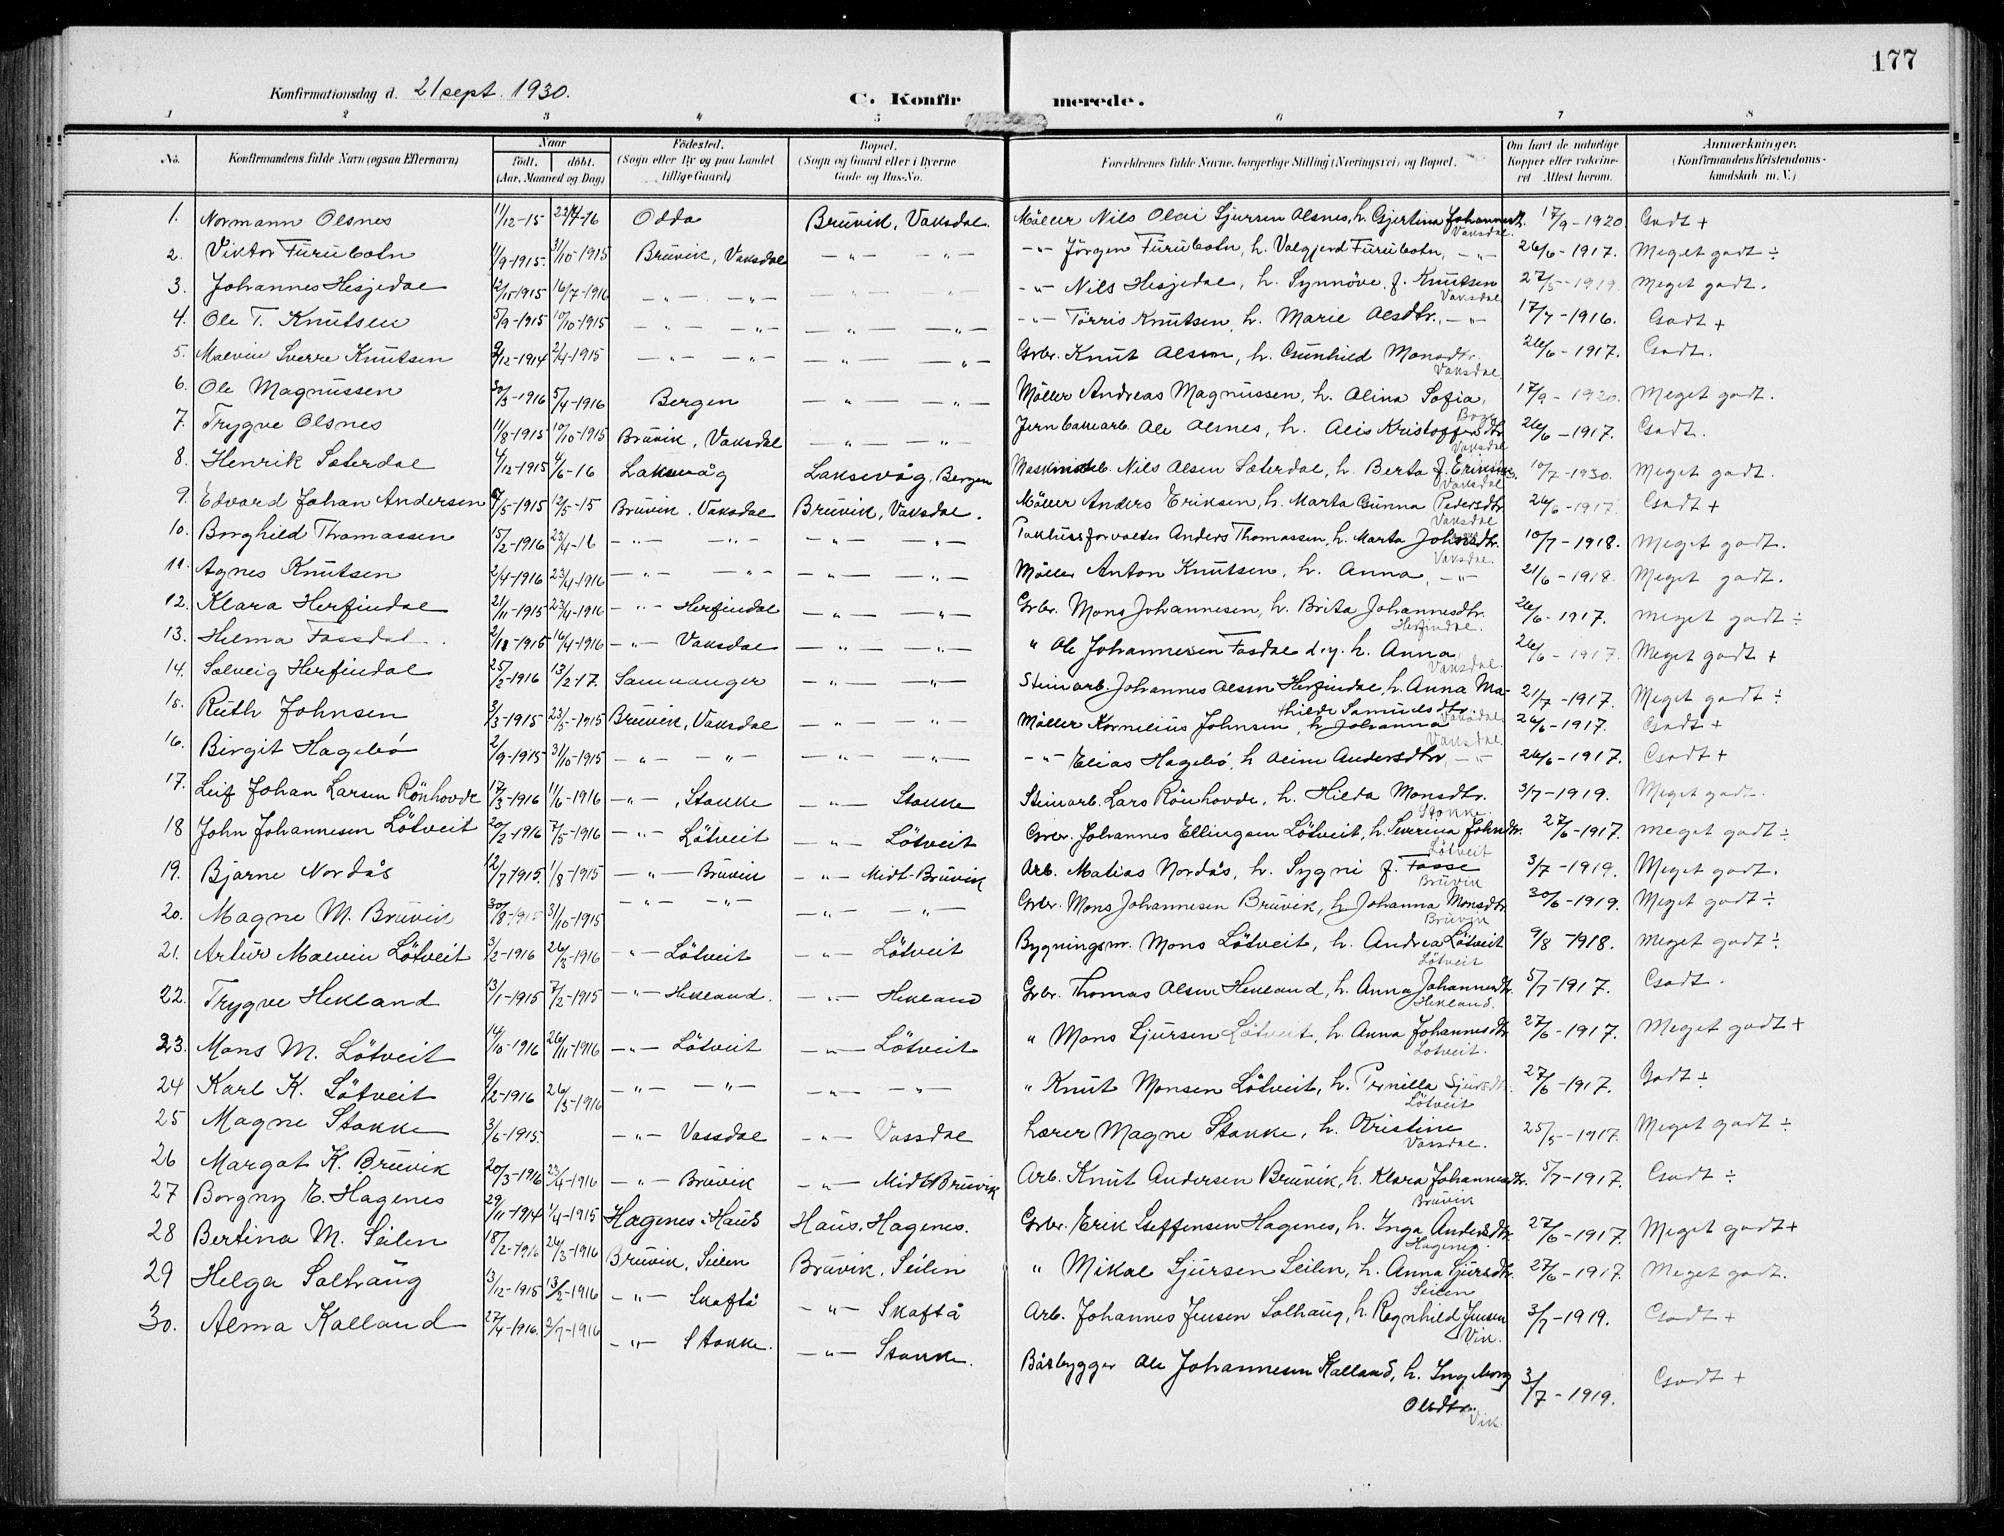 177
Konfirmationsdag d. 21 sept. 1930.
C. Konfirmerede.
1 2 3 4 5 6 7 8
No. | Konfirmandens fulde Navn (ogsaa Efternavn) | Naar født. døbt. (Aar, Maaned og Dag) | Fødested. (Sogn eller By og paa Landet tillige Gaard) | Bopæl. (Sogn og Gaard eller i Byerne Gade og Hus-No. | Forældrenes fulde Navne, borgerlige Stilling (Næringsvei) og Bopæl. | Om havt de naturlige Kopper eller vaccineret Attest herom. | Anmærkninger. (Konfirmandens Kristendomskundskab m. V.)
1. Normann Olsnes 11/12-15 Odda Bruvik, Vaksdal. Møller Nils Olai Sjursen Olsnes, h. Gjertina Johannesdtr. Vaksdal. 17/9-1920 Godt +
2. Viktor Furubotn 11/9-1915. 31/10-1915 Bruvik, Vaksdal —„— —„— —„— Jørgen Furubotn, h. Valgjerd Furubotn, —„— 26/6-1917. Meget godt ÷
3. Johannes Hesjedal 16/7-1916 —„— —„— —„— —„— —„— Nils Hesjedal, h. Synnøve, f. Knutsen Vaksdal 27/5-1919 Meget godt.
4. Ole T. Knutsen 5/9-1915 10/10-1915 —„— —„— —„— —„— —„— Tørris Knutsen, h. Marie Olsdtr. —„— 17/7-1916. Godt +
5. Malvin Sverre Knutsen 9/12-1914 2/4-1915 —„— —„— —„— —„— Grbr. Knut Olsen, h. Gunhild Monsdtr. Vaksdal. 26/6-1917. Godt.
6. Ole Magnussen 30/3-1916 5/4-1916 Bergen —„— —„— Møller Andreas Magnussen, h. Alina Sofia, 17/9-1920. Meget godt.
7. Trygve Olsnes 11/8-1915 10/10-1915 Bruvik, Vaksdal —„— —„— Jernbanearb. Ole Olsnes, h. Alis Kristoffersdtr Vaksdal 26/6-1917. Godt.
8. Henrik Sæterdal 4/12-1915 4/6-16 Laksevåg Laksevåg, Bergen Nils Olsen Sæterdal, h. Berta f. Eriksen, Vaksdal 10/7-1930. Meget godt.
9. Edvard Johan Andersen 12/5-15 Bruvik, Vaksdal Bruvik, Vaksdal. Møller Anders Eriksen, h. Marta Gunna Pedersdtr Vaksdal 26/6-1917. Godt +
10. Borghild Thomassen 15/2-1916 23/4-16 —„— —„— —„— —„— Pakhusforvalter Anders Thomassen, h. Marta Johnsdtr. Vaksdal. 10/7-1918. Meget godt.
11. Agnes Knutsen 2/4-1916 23/4-1916 —„— —„— —„— —„— Møller Anton Knutsen, h. Anna, —„— 21/6-1918. Meget godt.
12. Klara Herfindal 21/11-1915 23/4-1916 —„— Herfindal —„— —„— Grbr. Mons Johannesen, h. Brita Johannesdtr. Herfindal. 26/6-1917. Meget godt ÷
13. Helma Fossdal. 16/4-1916 —„— Vaksdal —„— —„— „ Ole Johannesen Fosdal d.y. h. Anna Vaksdal. 26/6-1917. Meget godt +
14. Solveig Herfindal 25/2-1916 13/2-17. Samnanger —„— —„— Stenarb. Johannes Olsen Herfindal, h. Anna Mathilde Samuelsdtr. Vaksdal 21/7-1917. Meget godt ÷
15. Ruth Johnsen 3/3-1915 23/5-1915 Bruvik, Vaksdal —„— —„— Møller Kornelius Johnsen, h. Johanna Vaksdal. 26/6-1917. Godt +
16. Birgit Hagebø 2/9-1915 31/10-1915 —„— —„— —„— —„— —„— Elias Hagebø, h. Aline Andersdtr, —„— 26/6-1917. Godt +
17. Leif Johan Larsen Rønhovde 17/3-1916 11/6-1916 —„— Stokke —„— Stokke Stenarb. Lars Rønhovde, h. Hilda Monsdtr. Stokke. 3/7-1919. Meget godt.
18 John Johannesen Løtveit 20/2-1916 7/5-1916 —„— Løtveit —„— Løtveit Grbr. Johannes Ellingsen Løtveit, h. Severina Johndtr. Løtveit 27/6-1917. Meget godt ÷
19. Bjarne Nordås 12/7-1915. 1/8-1915 —„— Bruvik —„— Midt-Bruvik Arb. Matias Nordås, h. Sygni f. Fosse Bruvik 3/7-1919. Meget godt.
20. Magne M. Bruvik 30/8-1915 31/10-1915 —„— —„— —„— —„— Grbr. Mons Johannesen Bruvik, h. Johanna Monsdtr. Bruvik 30/6-1919. Meget godt ÷
21. Artur Malvin Løtveit 3/2-1916 26/3-1916 —„— Løtveit —„— Løtveit Bygningsm. Mons Løtveit, h. Andrea Løtveit Løtveit 9/8-1918. Meget godt ÷
22. Trygve Hekland 13/1-1915 7/2-1915 —„— Hekland. —„— Hekland Grbr. Thomas Olsen Hekland, h. Anna Johannesdtr. Hekland. 5/7-1917. Godt.
23. Mons M. Løtveit 14/10-1916 26/11-1916 —„— Løtveit —„— Løtveit „ Mons Sjursen Løtveit, h. Anna Johannesdtr Løtveit. 27/6-1917. Meget godt +
24 Karl K. Løtveit 9/2-1916 26/3-1916 —„— —„— —„— —„— „ Knut Monsen Løtveit, h. Pernilla Sjursdtr. Løtveit 27/6-1917. Godt ÷
25 Magne Stokke 3/6-1915. —„— Vassdal —„— Vassdal Lærer Magne Stokke, h. Kristine Vassdal. 25/5-1917. Meget godt ÷
26 Margot K. Bruvik 20/3-1916 23/4-1916 —„— Bruvik —„— Midt-Bruvik Arb. Knut Andersen Bruvik, h. Klara Johannesdtr. Bruvik 5/7-1917. Godt ÷
27 Borgny E. Hagenes 29/11-1914 1/4-1915 Hagenes i Haus Haus, Hagenes. Grbr. Erik Steffensen Hagenes, h. Inga Andersdtr Hagenes. 27/6-1917. Meget godt +
28 Bertina M. Seilen 18/2-1916 26/3-1916 Bruvik, Seilen Bruvik, Seilen „ Mikal Sjursen Seilen, h. Anna Sjursdtr. Seilen 27/6-1917. Meget godt.
29 Helga Solhaug 3/12-1915 13/2-1916 —„— Skaftå —„— Skaftå Arb. Johannes Jensen Solhaug, h. Rognhild Jensen Vik. 3/7-1919. Godt +
30. Alma Kalland 27/4-1916. 2/7-1916 —„— Stokke. —„— Stokke. Båtbygger Ole Johannesen Kalland, h. Ingeborg Olsdtr. Vik. 3/7-1919. Godt +